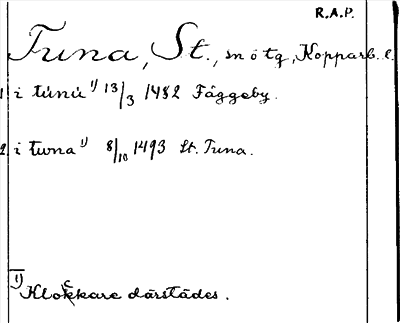 R.A.P.
Tuna, St., sn o tg, Kopparb. l.
1 i túnú 1) 13/3 1482 Fäggeby.
2 i twna 1) 8/10 1493 St. Tuna.
1) Klockare därstädes.